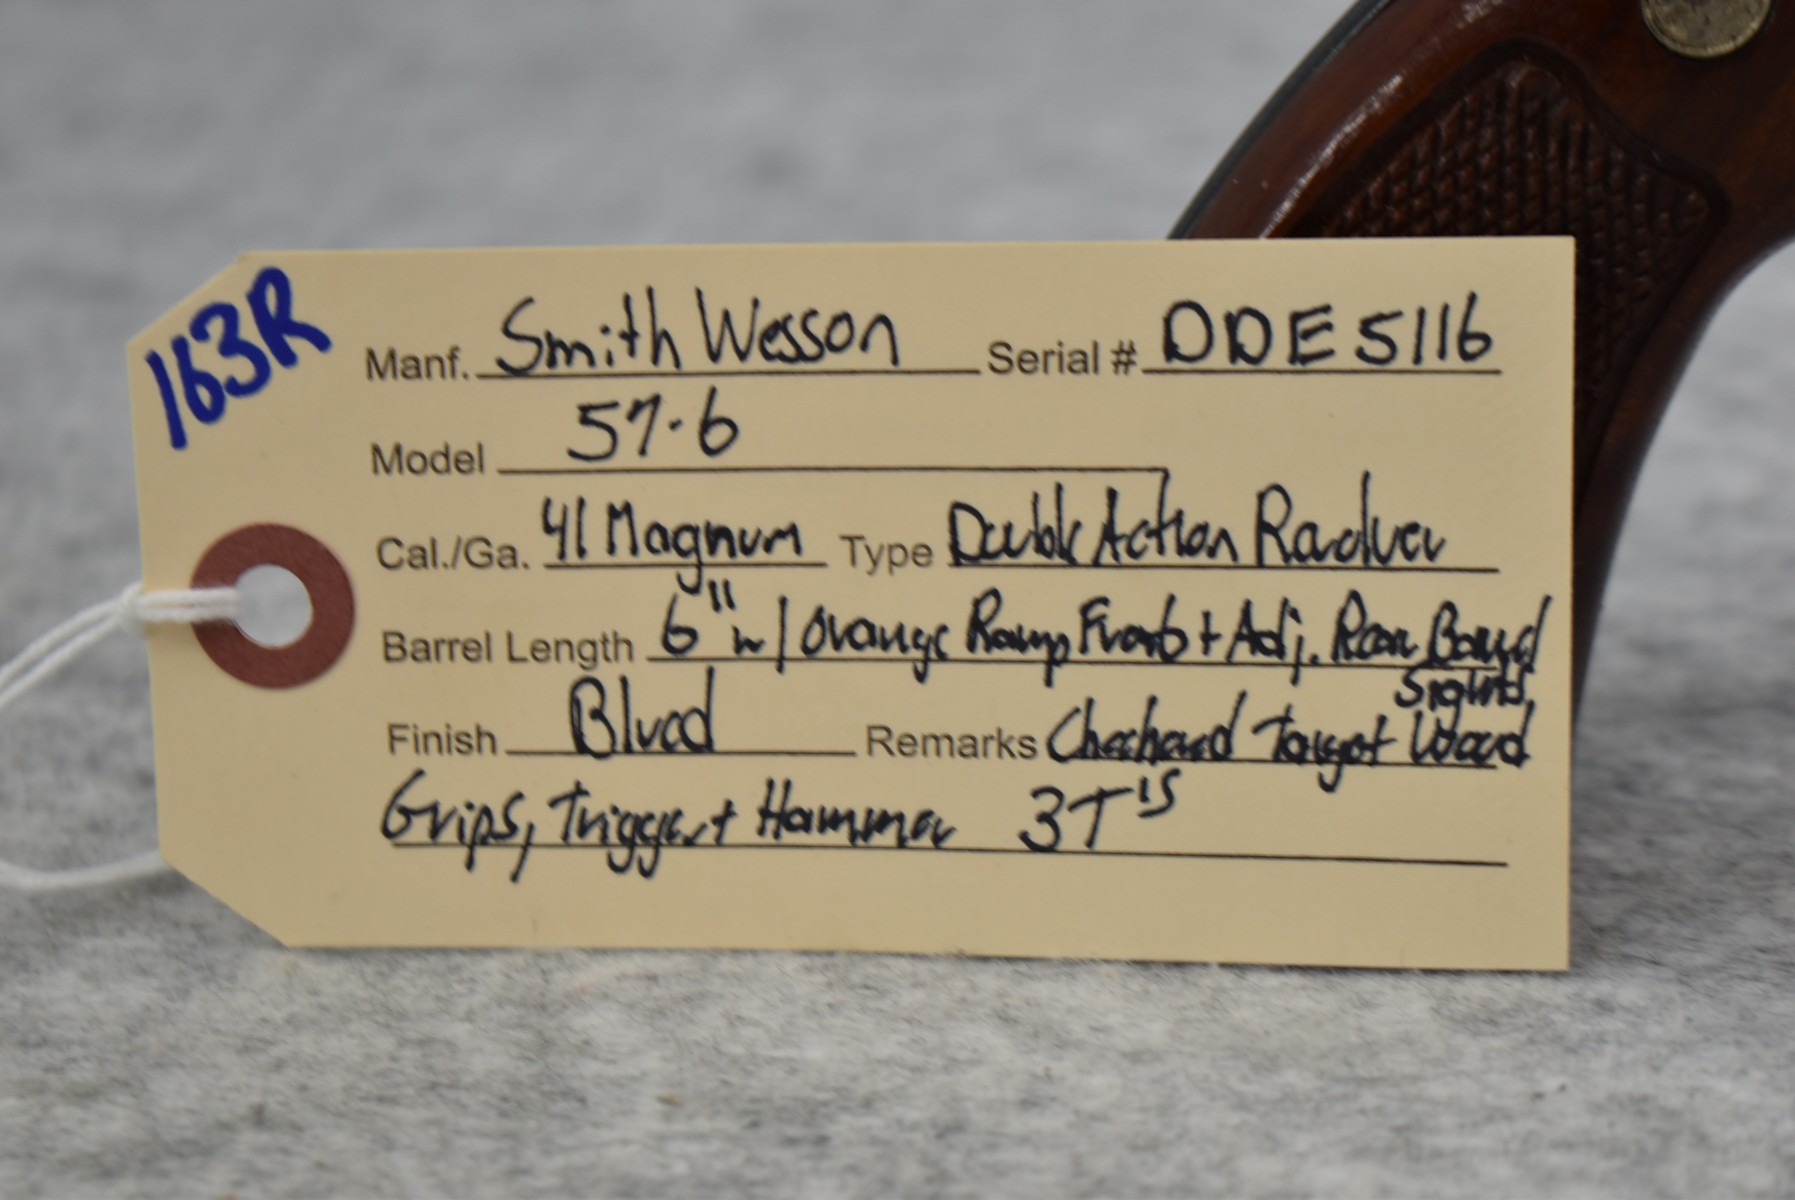 163R
Manf. Smith Wesson Serial # DDE5116
Model 57-6
Cal./Ga. 41 Magnum Type Double Action Revolver
Barrel Length 6" w/ Orange Ramp Front + Adj. Rear Bound
Sights,
Finish Blued Remarks Checkered Target Wood
Grips, Trigger + Hammer 3T's